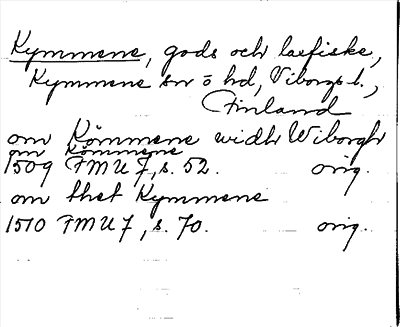 Kymmene, gods och laxfiske,
Kymmene sn ö hd, Viborgs l.,
Finland
om Kömmene widh Wiborgh
om Kömmene
1509 FMU 7, s. 52. orig.
om thet Kymmene
1510 FMU 7, s. 70. orig.